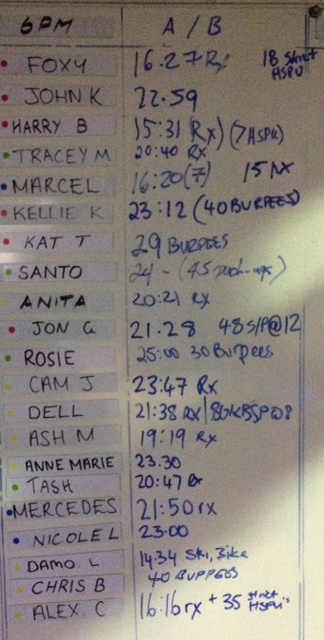 6PM A / B
FOXY 16.27 Rx 18 Strict HSPU
JOHN K 22.59
HARRY B 15:31 (Rx) (7 HSPU)
TRACEY M 20:40 Rx
MARCEL 16:20 (7) 15 Rx
KELLIE K 23:12 (40 BURPEES)
KAT T 29 BURPEES
SANTO 24 - (45 push-ups)
ANITA 20:21 Rx
JON G 21.28 48 S/P@12
ROSIE 25:00 30 Burpees
CAM J 23:47 Rx
DELL 21:38 Rx
ASH M 19:19 Rx
ANNE MARIE 23.30
TASH 20:47 Rx
MERCEDES 21:50 rx
NICOLE L 23.00
DAMO. L 14.34 Ski, Bike
CHRIS B 40 BURPEES
ALEX. C 16:16 rx + 35 strict HSPU's